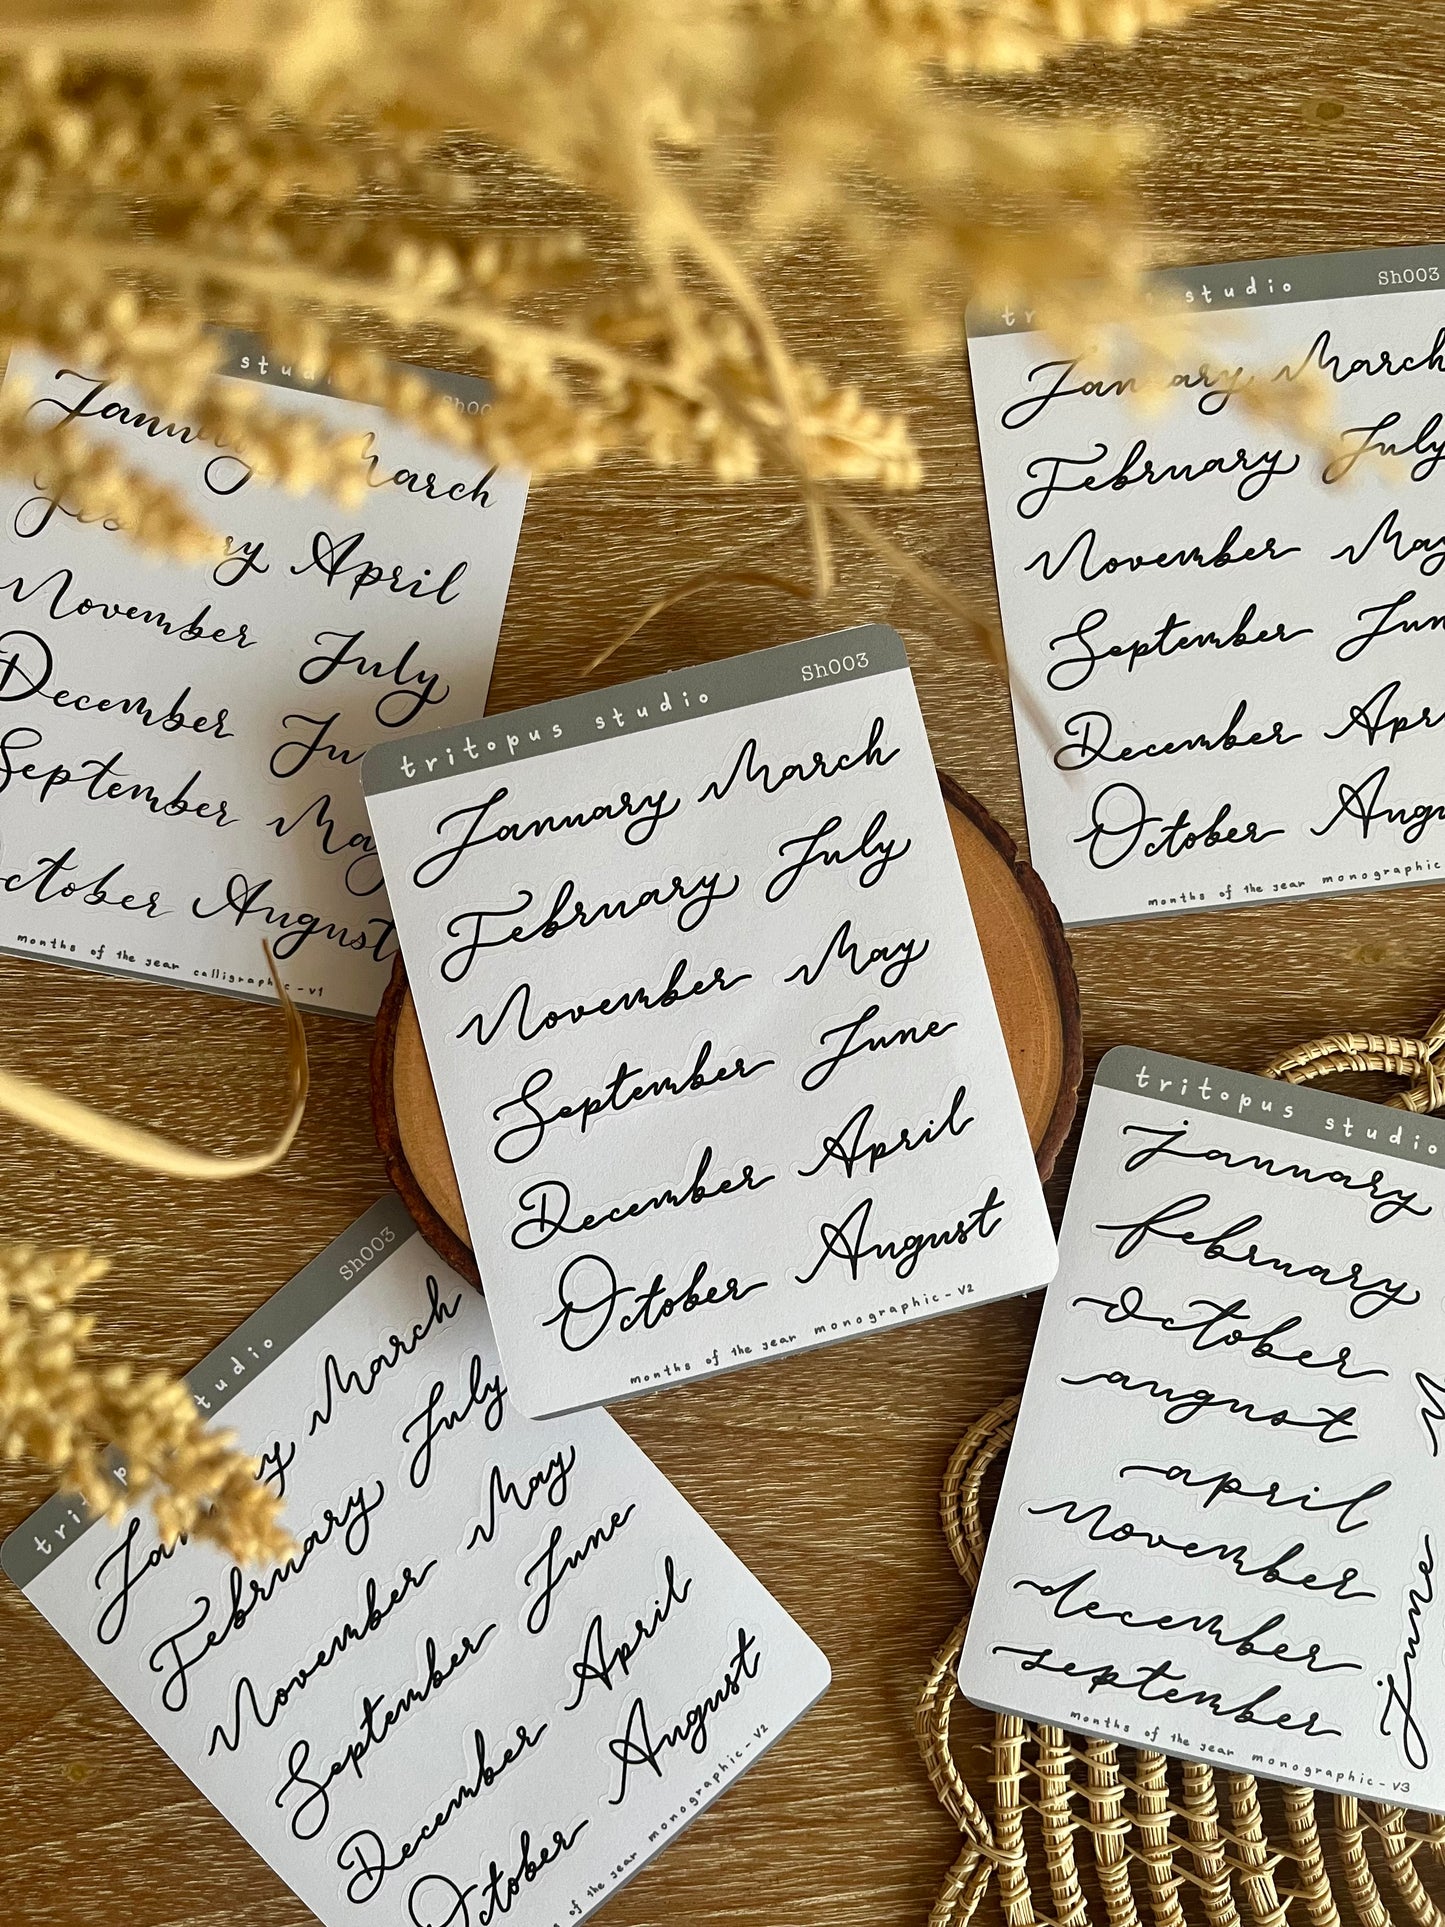 studio Sh003
January March
ry April
November July
December Ju
September May
October August
months of the year calligraphic - v1
studio Sh003
January March
February July
November May
September June
December April
October August
months of the year monographic
tritopus studio Sh003
January March
February July
November May
September June
December April
October August
months of the year monographic - v2
Sh003
tritopus studio
January March
February July
November May
September June
December April
October August
of the year monographic - v2
tritopus studio
january
february
october
august
april
november
december
september
june
months of the year monographic - v3